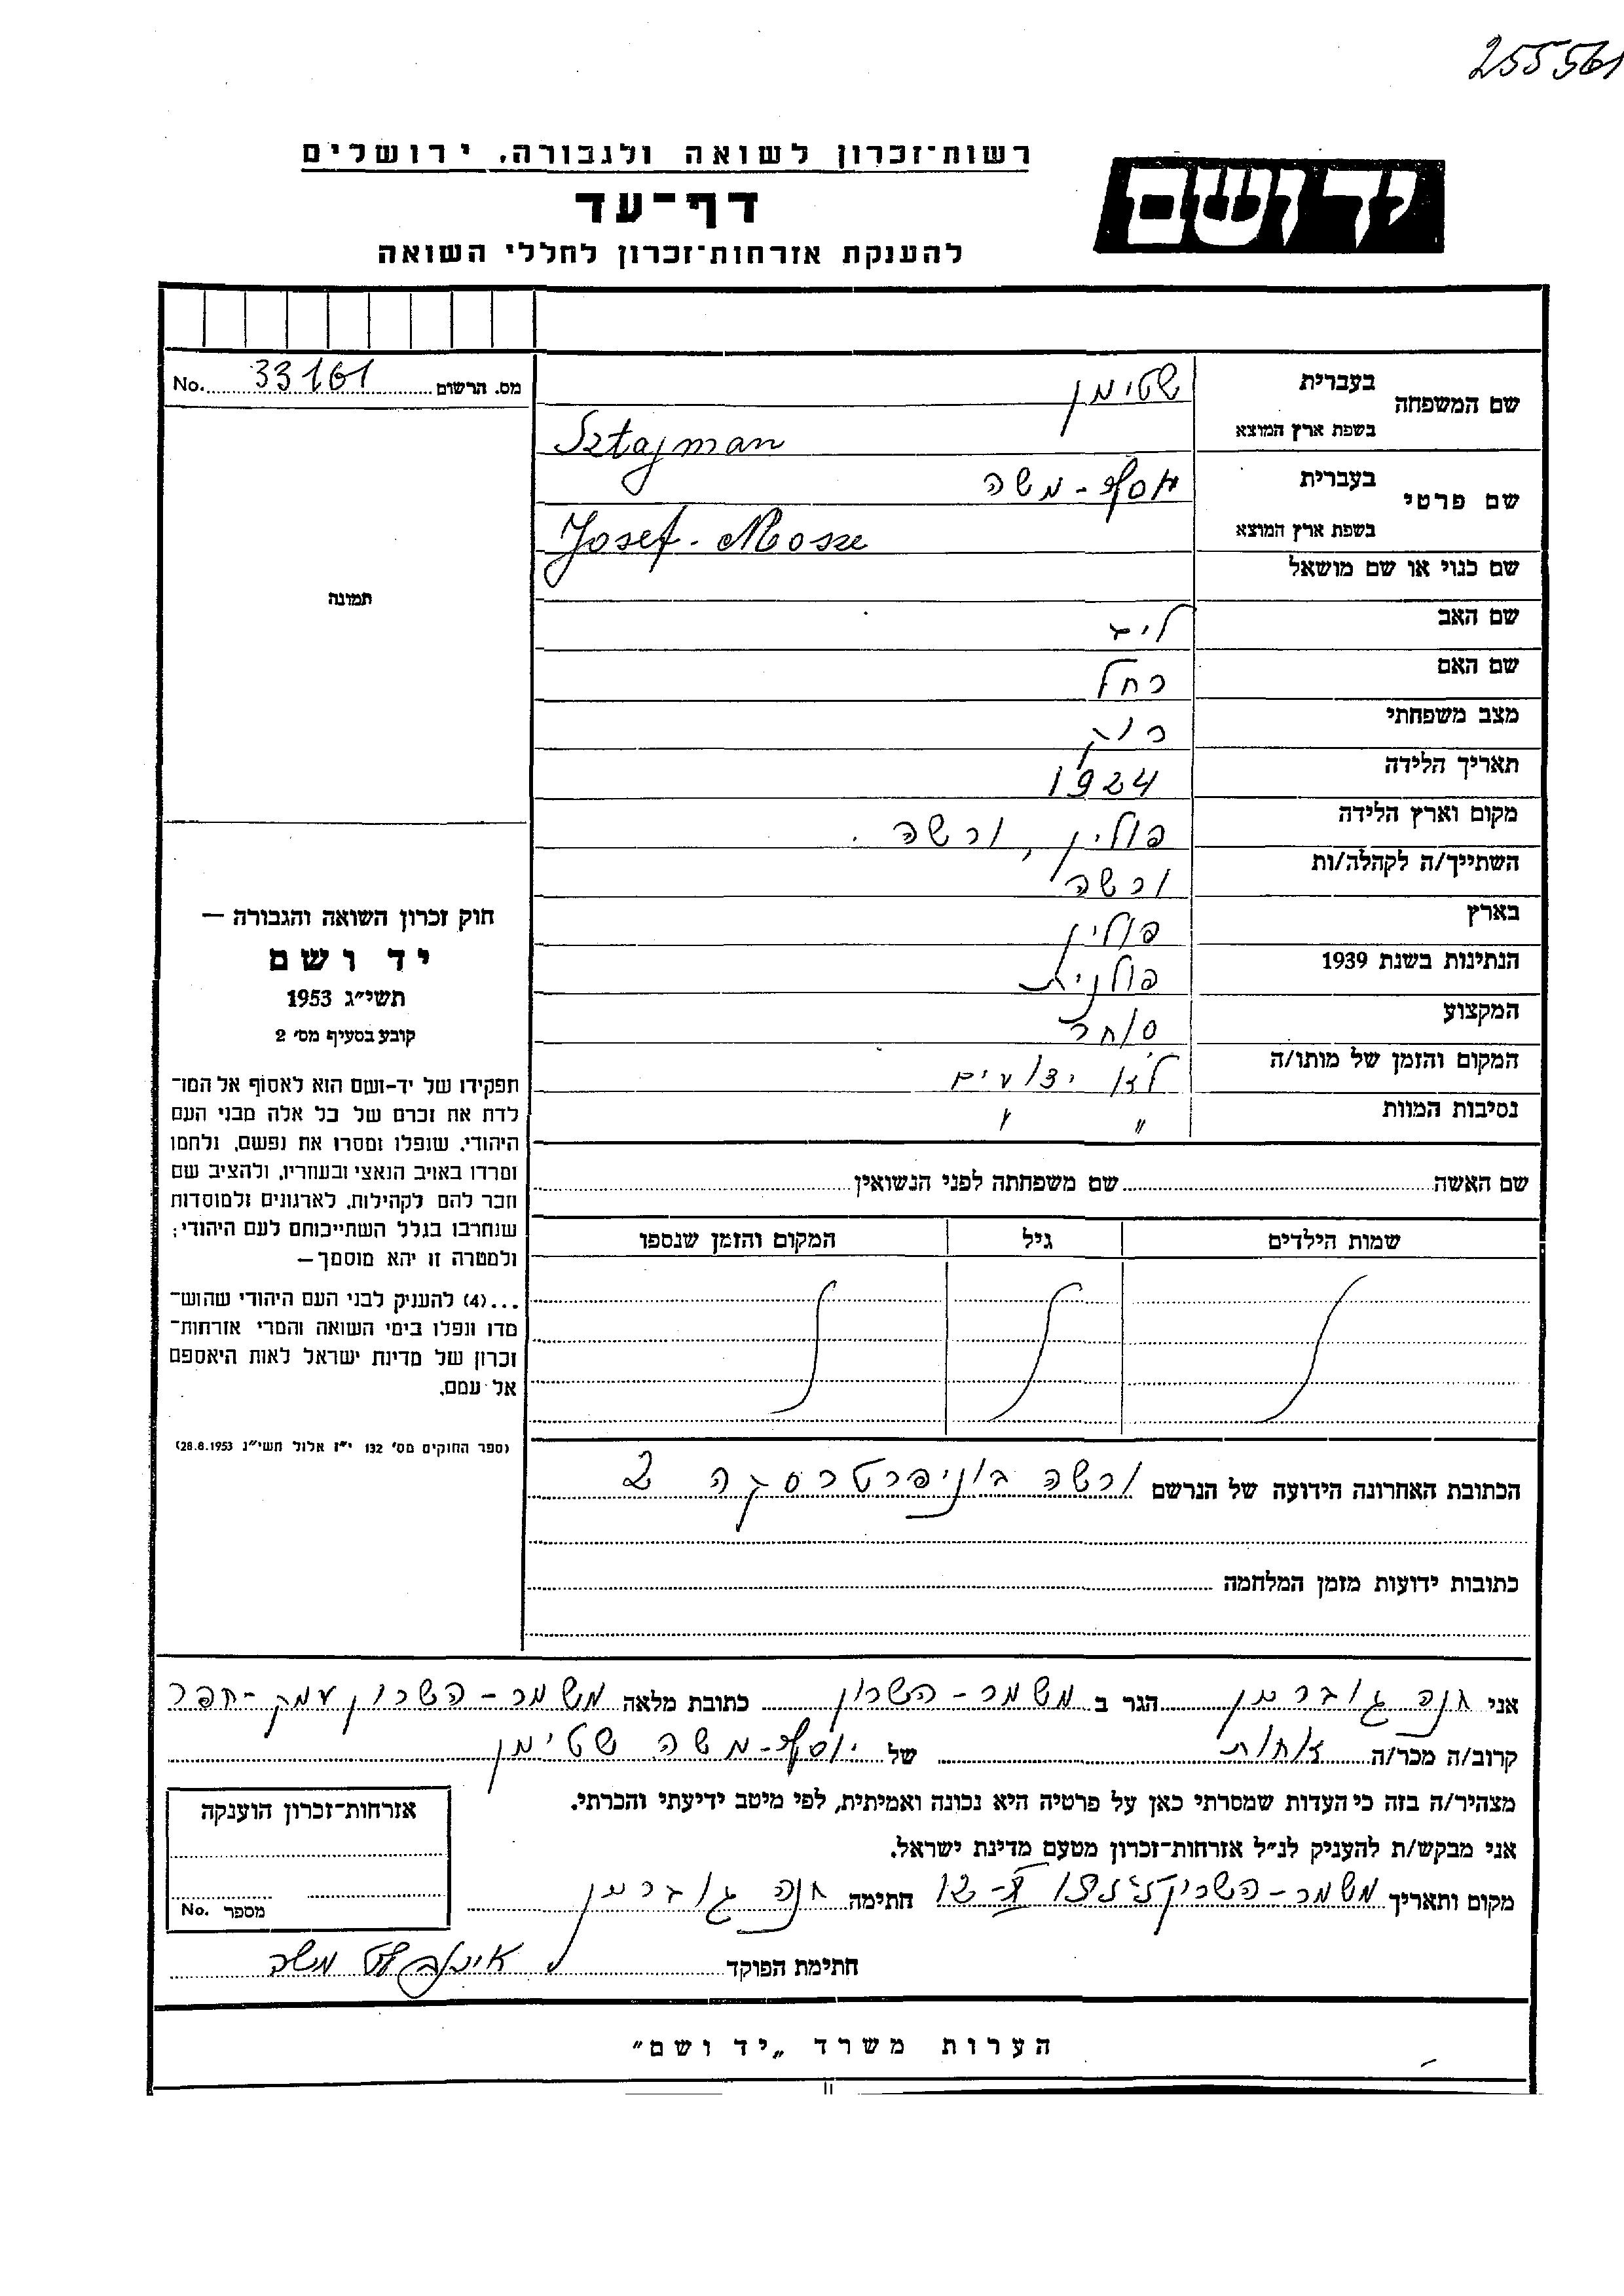 255561
רשות־זכרון לשואה ולגבורה, ירושלים
יד ושם
דף־עד
להענקת אזרחות־זכרון לחללי השואה
שם המשפחה
בעברית שטימן
בשפת ארץ המוצא Sztajman
שם פרטי
בעברית יוסף-משה
בשפת ארץ המוצא Josef-Mosze
שם כנוי או שם מושאל
שם האב ליב
שם האם רחל
מצב משפחתי רוק
תאריך הלידה 1924
מקום וארץ הלידה פולין, ורשה.
השתייך/ה לקהלה/ות ורשה
בארץ פולין
הנתינות בשנת 1939 פולנית
המקצוע סוחר
המקום והזמן של מותו/ה לא ידועים
נסיבות המוות " "
מס. הרשום 33161 No.
תמונה
חוק זכרון השואה והגבורה —
יד ושם
תשי״ג 1953
קובע בסעיף מס׳ 2
תפקידו של יד-ושם הוא לאסוף אל המו־
לדת את זכרם של כל אלה מבני העם
היהודי, שנפלו ומסרו את נפשם, נלחמו
ומרדו באויב הנאצי ובעוזריו, ולהציב שם
וזכר להם לקהילות, לארגונים ולמוסדות
שנחרבו בגלל השתייכותם לעם היהודי;
ולמטרה זו יהא מוסמך—
...(4) להעניק לבני העם היהודי שהוש־
מדו ונפלו בימי השואה והמרי אזרחות־
זכרון של מדינת ישראל לאות היאספם
אל עמם.
(ספר החוקים מס׳ 132 י״ז אלול תשי״ג 28.8.1953)
שם האשה שם משפחתה לפני הנשואין
שמות הילדים גיל המקום והזמן שנספו
הכתובת האחרונה הידועה של הנרשם ורשה בוניפרטרסקה 2
כתובות ידועות מזמן המלחמה
אני חנה הגר ב משמר-השרון כתובת מלאה משמר-השרון עמק-חפר
קרוב/ה מכר/ה אחות של יוסף-משה שטימן
מצהיר/ה בזה כי העדות שמסרתי כאן על פרטיה היא נכונה ואמיתית, לפי מיטב ידיעתי והכרתי.
אני מבקש/ת להעניק לנ״ל אזרחות־זכרון מטעם מדינת ישראל.
מקום ותאריך משמר-השרון חתימה חנה
חתימת הפוקד משה
אזרחות־זכרון הוענקה
מספר No.
הערות משרד „יד ושם״